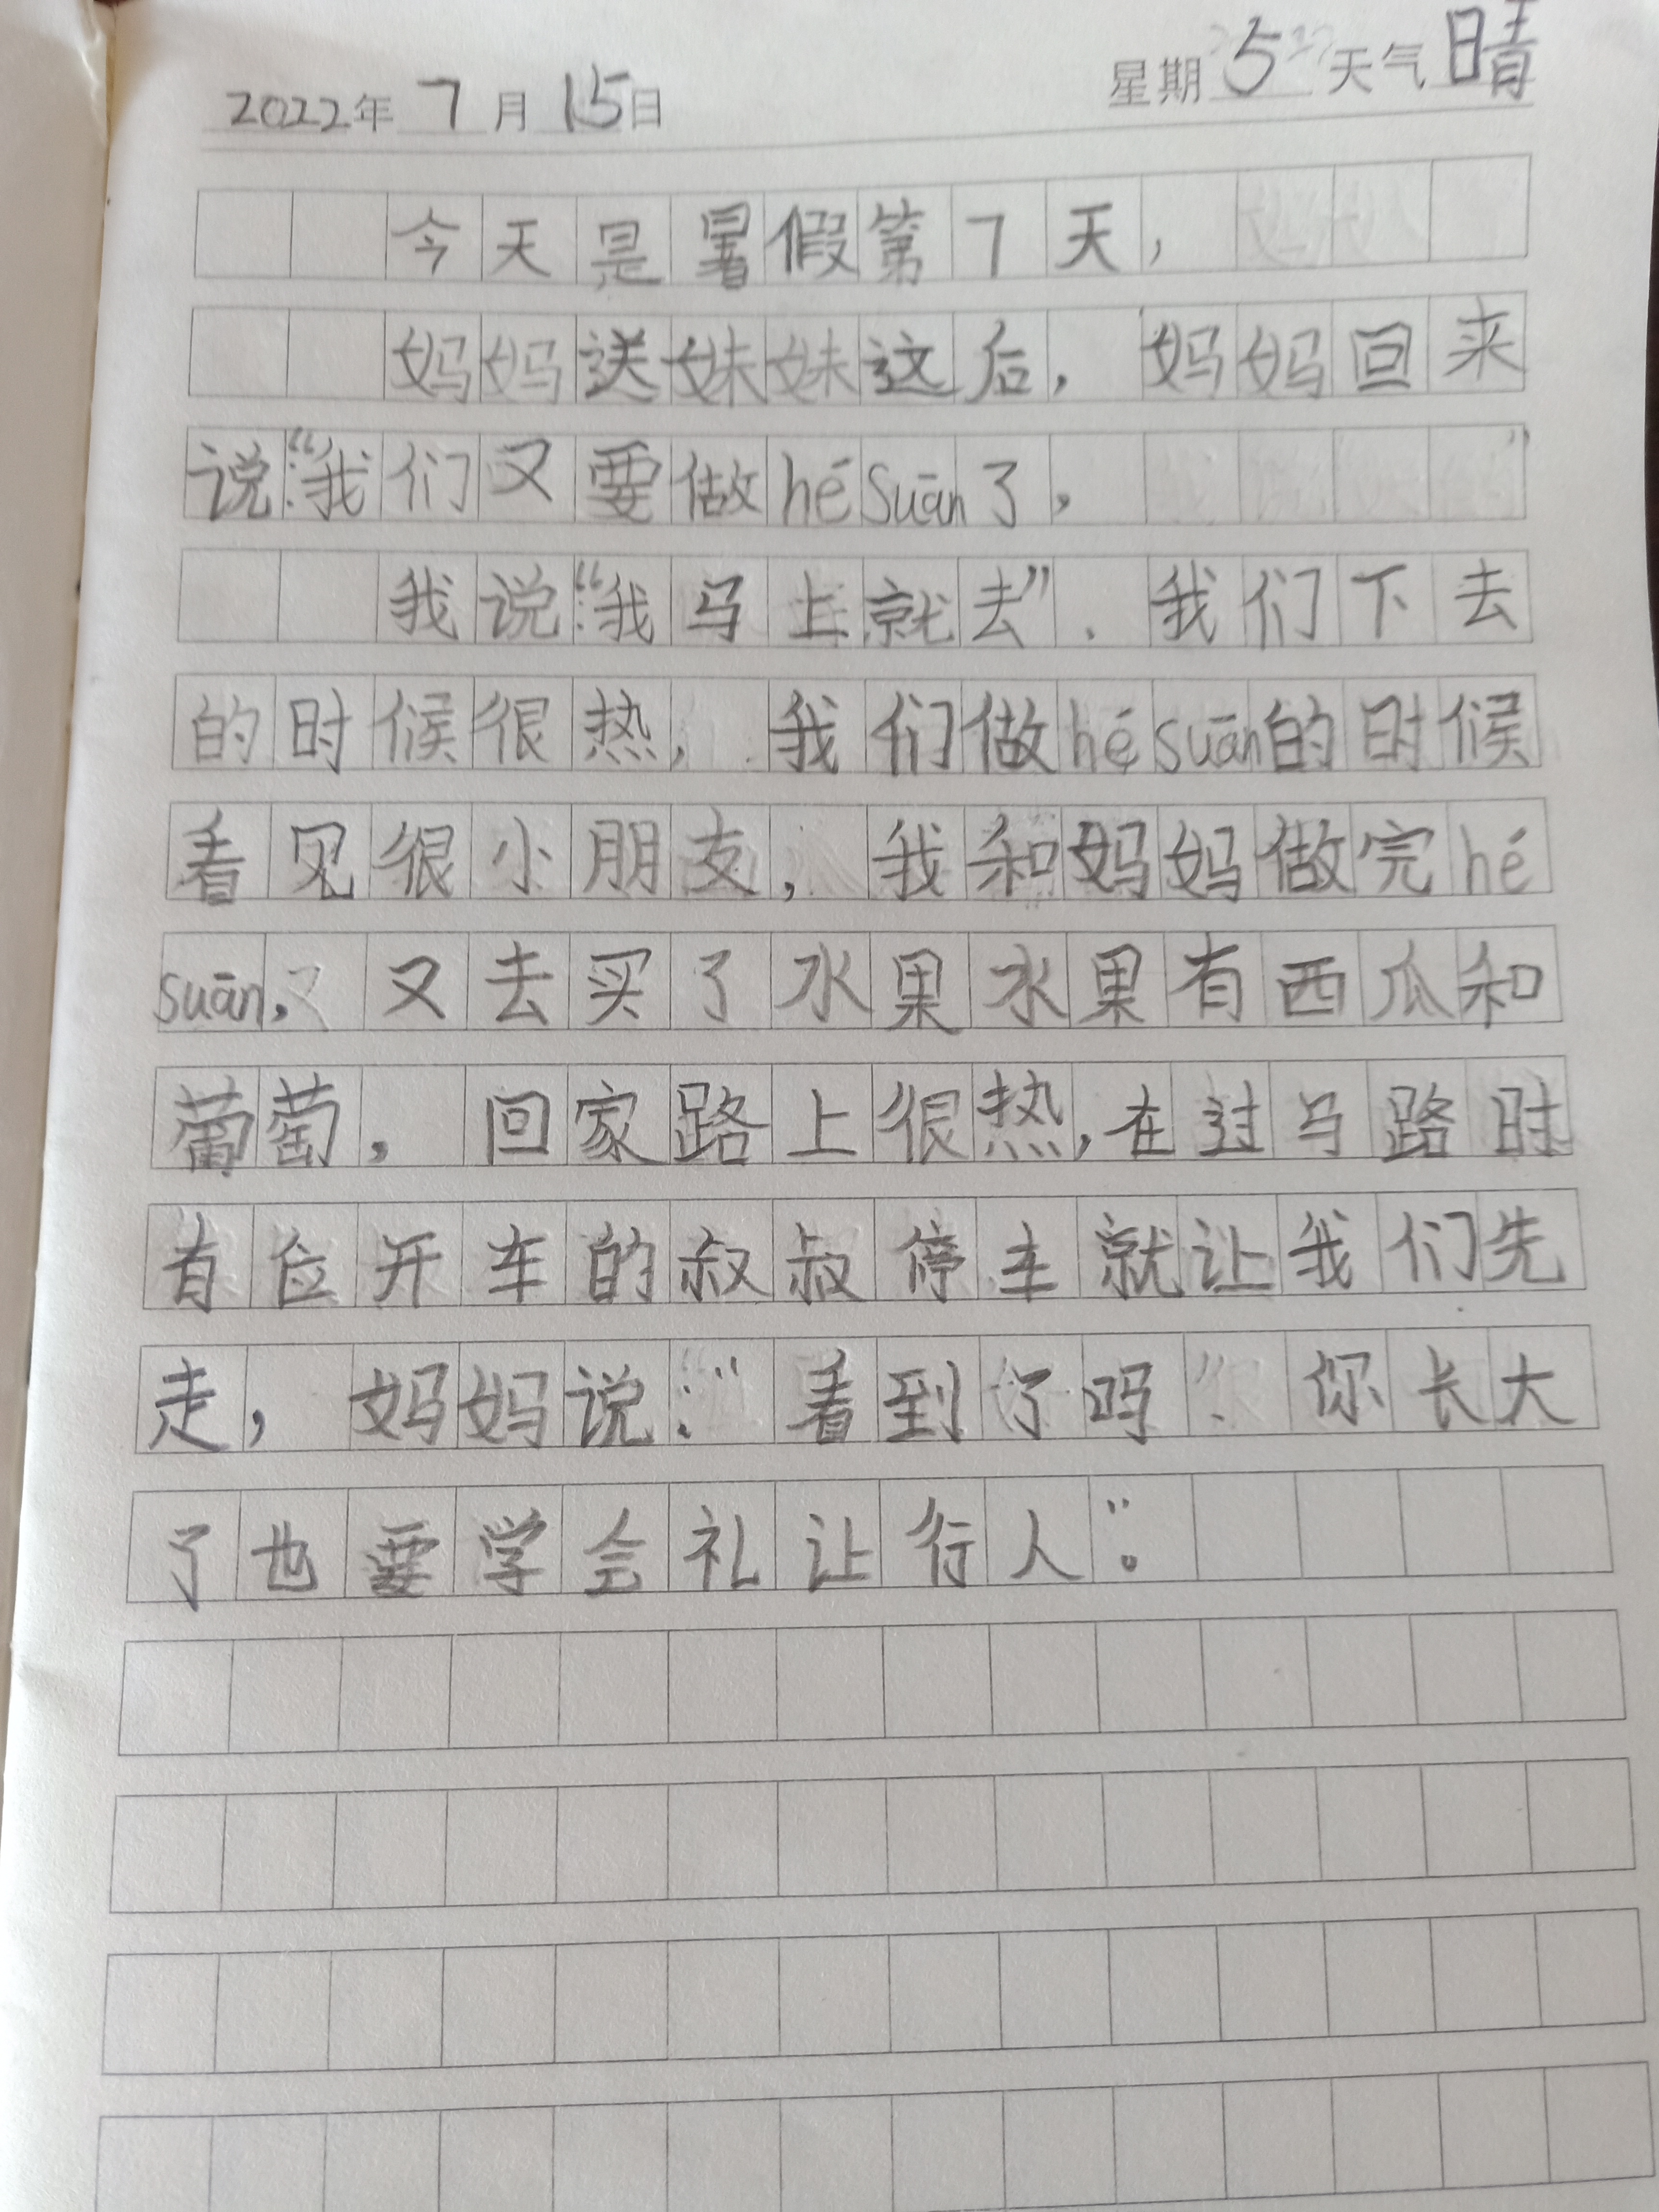 2022年 7月 15日 星期 5 天气 晴
今天是暑假第7天，
妈妈送妹妹这后，妈妈回来
说：“我们又要做hésuān了，”
我说：“我马上就去”．我们下去
的时候很热，我们做hésuān的时候
看见很小朋友，我和妈妈做完hé
suān，又去买了水果水果有西瓜和
葡萄，回家路上很热，在过马路时
有位开车的叔叔停车就让我们先
走，妈妈说：“看到了吗、你长大
了也要学会礼让行人”。